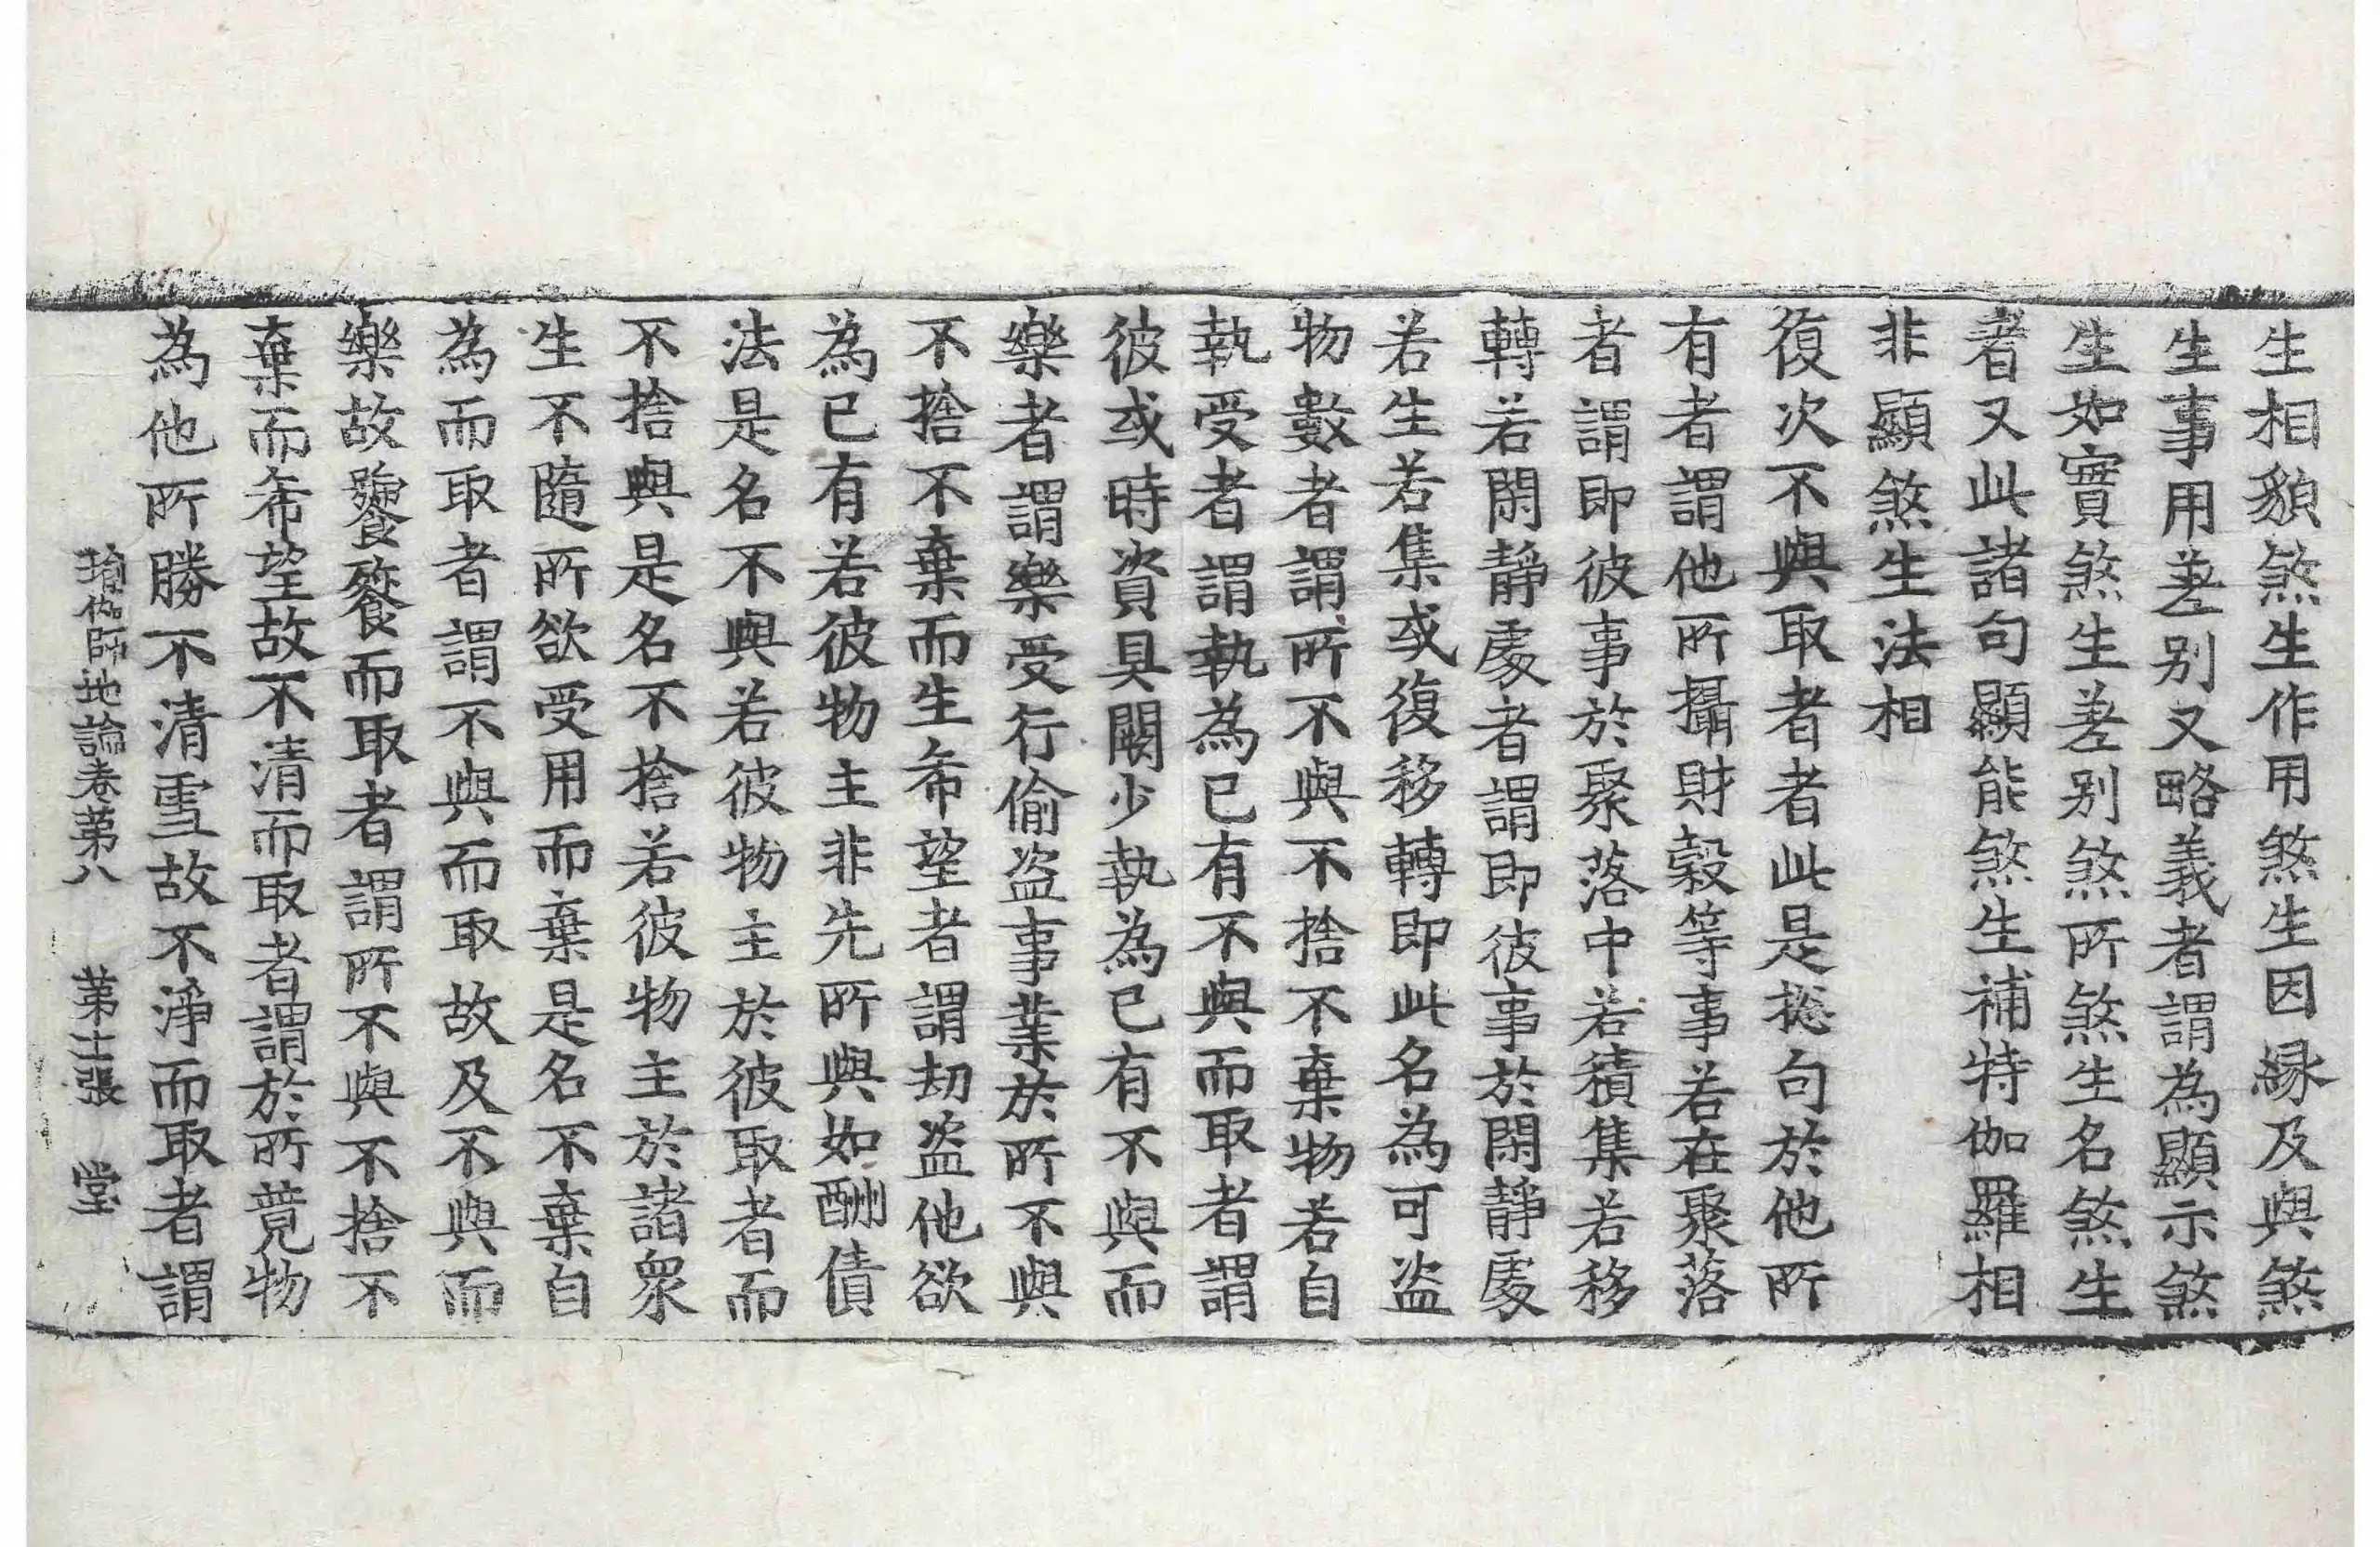 生相貌煞生作用煞生因緣及與煞
生事用差別又略義者謂為顯示煞
生如實煞生差別煞所煞生名煞生
者又此諸句顯能煞生補特伽羅相
非顯煞生法相
復次不與取者者此是揔句於他所
有者謂他所攝財穀等事若在聚落
者謂即彼事於聚落中若積集若移
轉若閑靜處者謂即彼事於閑靜處
若生若集或復移轉即此名為可盜
物數者謂所不與不捨不棄物若自
執受者謂執為已有不與而取者謂
彼或時資具闕少執為已有不與而
樂者謂樂受行偷盜事業於所不與
不捨不棄而生希望者謂劫盜他欲
為已有若彼物主非先所與如酬債
法是名不與若彼物主於彼取者而
不捨與是名不捨若彼物主於諸眾
生不隨所欲受用而棄是名不棄自
為而取者謂不與而取故及不與而
樂故饕餮而取者謂所不與不捨不
棄而希望故不清而取者謂於所競物
為他所勝不清雪故不淨而取者謂
瑜伽師地論卷第八 第十二張 堂